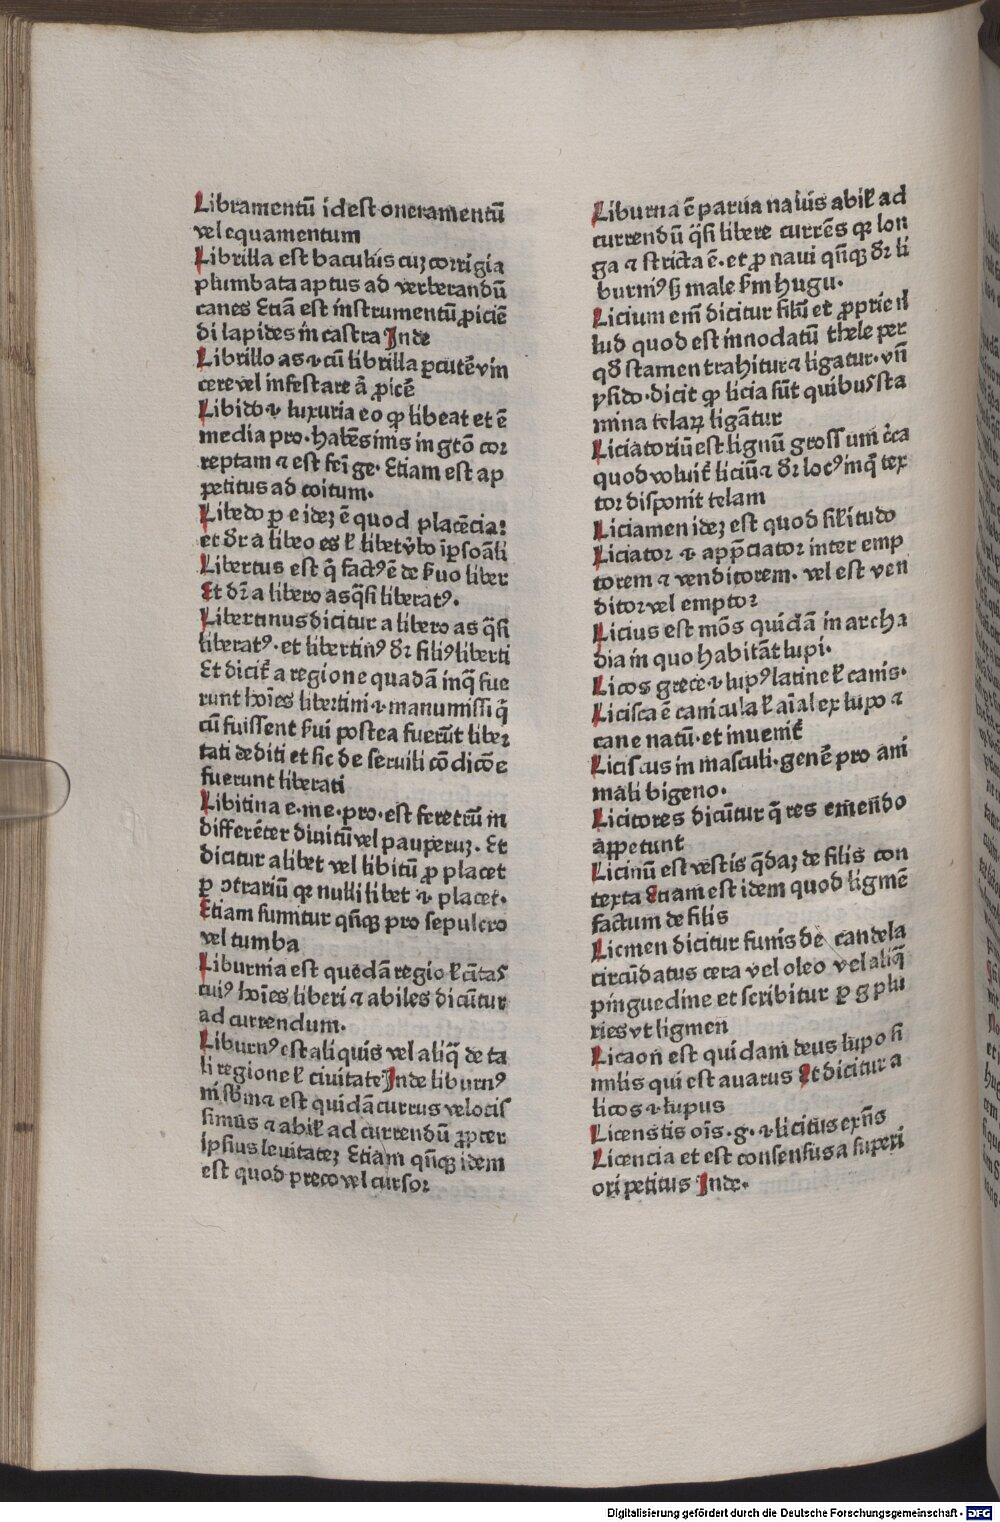 Libramentū id est oneramentū
vel equamentum
Librilla est baculus cuȝ corrigia
plumbata aptus ad verberandū
canes Etiā est instrumentū ꝓiciē
di lapides in castra Inde
Librillo as ⁊ cū librilla ꝑcutē vin
cere vel infestare ā ꝓicē
Libido ⁊ luxuria eo ꝙ libeat et ē
media pro. habēs ims in gtō cor
reptam ⁊ est fei ge. Etiam est ap
petitus ad coitum.
Libedo ꝑ e ideȝ ē quod placēcia:
et dr̄ a libeo es ł libet v̄bo īpsoāli
Libertus est q̄ factꝰ ē de ẜuo liber
Et dr̄ a libero as q̄si liberatꝰ.
Libertinus dicitur a libero as q̄si
liberatꝰ. et libertinꝰ dr̄ filiꝰ liberti
Et dicit̄ a regione quadā inq̄ fue
runt hoīes libertini ⁊ manumissi q̄
cū fuissent ẜui postea fuerūt liber
tati dediti et sic de seruili cōdicōe
fuerunt liberati
Libitina e. me. pro. est feretrū in
differēter diuitū vel pauperuȝ. Et
dicitur a libet vel libitū ꝓ placet
ꝑ ꝯtrariū qꝛ nulli libet ⁊ placet.
Etiam sumitur qn̄qꝫ pro sepulcro
vel tumba
Liburnia est quedā regio ł ciitas
cuiꝰ hoīes liberi ⁊ abiles dicūtur
ad currendum.
Liburnꝰ est aliquis vel aliq̄ de ta
li regione ł ciuitate Inde liburnꝰ
ni sb̄in ⁊ est quidā currus velocis
simus ⁊ abił ad currendū ꝓpter
ipsius leuitateȝ Etiam qn̄qꝫ idem
est quod preco vel cursor
Liburna ē parua nauis abił ad
currendū q̄si libere currēs qꝛ lon
ga ⁊ stricta ē. et ꝓ naui qn̄qꝫ dr̄ li
burniꝰ sꝫ male ẜm hugu.
Licium em̄ dicitur filū et ꝓprie il
lud quod est innodatū thele per
qd̄ stamen trahitur ⁊ ligatur. vn̄
ysido. dicit ꝙ licia sūt quibus sta
mina telaꝝ ligātur
Liciatoriū est lignū grossum c̄ca
quod voluit̄ liciū ⁊ dr̄ locꝰ inq̄ tex
tor disponit telam
Liciamen ideȝ est quod silitudo
Liciator ⁊ app̄ciator inter emp
torem ⁊ venditorem. vel est ven
ditor vel emptor
Licius est mōs quidā in archa
dia in quo habitāt lupi.
Licos grece ⁊ lupꝰ latine ł canis.
Licisca ē canicula ł aīal ex lupo ⁊
cane natū. et inuenit̄
Liciscus in masculi. genē pro ani
mali bigeno.
Licitores dicūtur q̄ res emendo
appetunt
Licinū est vestis q̄daȝ de filis con
texta Etiam est idem quod ligmē
factum de filis
Licmen dicitur funis de candela
circūdatus cera vel oleo vel aliq̄
pinguedine et scribitur ꝑ g plu
ries vt ligmen
Licaon est quidam deus lupo si
milis qui est auarus Et dicitur a
licos ⁊ lupus
Licenstis oīs. g. ⁊ licitus exn̄s
Licencia et est consensus a superi
ori petitus Inde.
Digitalisierung gefördert durch die Deutsche Forschungsgemeinschaft - DFG